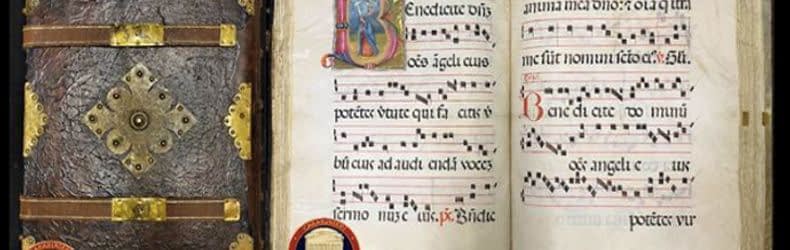 BEnedicite dn̄z
oēs āgeli eius
potētes v̄tute qui fa citis v̄
bū eius ad audi endā voces
sermo nuz e ius. ps. Bn̄dic
anima mea dn̄o. ⁊ oīa q ifra
me sūt nomini scto ei⁹. v. Gli.
Bene di cite do minū
oēs angeli e ius
potētes vir